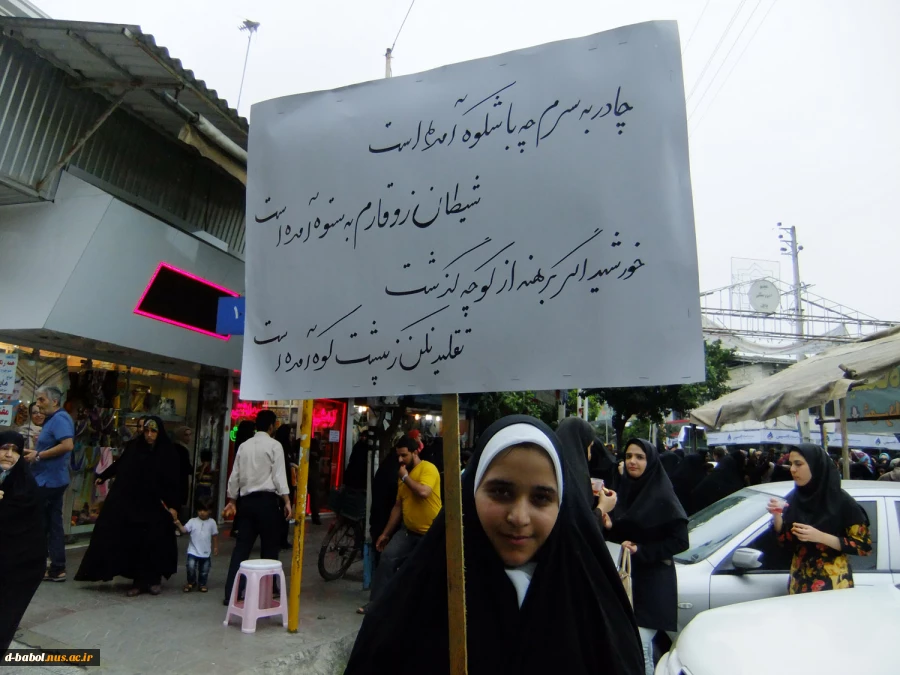 چادر به سرم چه با شکوه آمده است
شیطان ز وقارم به ستوه آمده است
خورشید اگر برهنه از کوچه گذشت
تقلید نکن ز پشت کوه آمده است
d-babol.nus.ac.ir